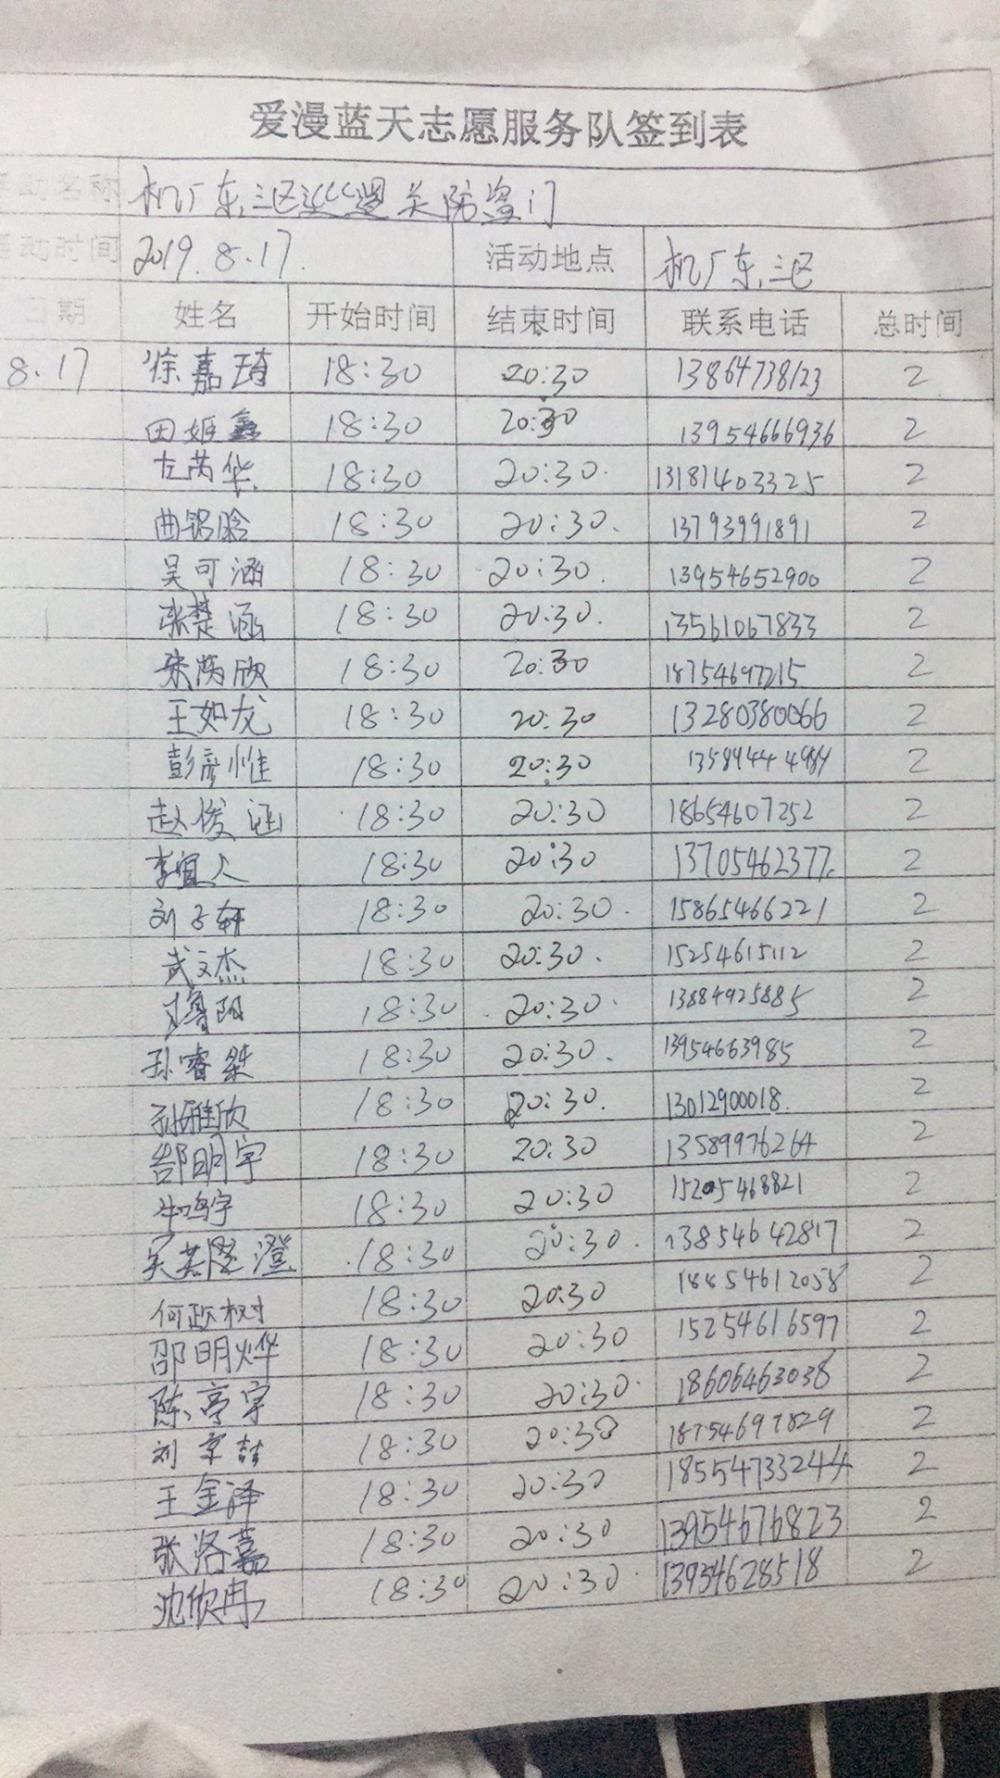 爱漫蓝天志愿服务队签到表
活动名称 机厂东三区巡逻关防盗门
活动时间 2019.8.17. 活动地点 机厂东三区
日期 姓名 开始时间 结束时间 联系电话 总时间
8.17 徐嘉琦 18:30 20:30 13864738123 2
田姬鑫 18:30 20:30 13954666936 2
左芮华 18:30 20:30. 13181403325 2
曲铭晗 18:30 20:30. 13793991891 2
吴可涵 18:30 20:30. 13954652900 2
张楚涵 18:30 20:30. 13561067833 2
18:30 20:30 18754697215 2
王如龙 18:30 20:30 13280380066 2
彭彦惟 18:30 20:30 2
赵俊涵 18:30 20:30 18654607252 2
李宜人 18:30 20:30 13705462377. 2
刘子轩 18:30 20:30. 15865466221 2
武文杰 18:30 20:30. 15254615112 2
18:30 20:30. 13884925885 2
孙睿桀 18:30 20:30. 13954663985 2
孙雅欣 18:30 20:30. 13012900018. 2
郜明宇 18:30 20:30 13589976264 2
18:30 20:30 15205468821 2
18:30 20:30. 13854642817 2
何政树 18:30 20:30 18854612058 2
邵明烨 18:30 20:30 15254616597 2
陈亭宇 18:30 20:30. 18606463038 2
刘京喆 18:30 20:30 18754697829 2
王金泽 18:30 20:30 18554733244 2
张洛嘉 18:30 20:30 13954676823 2
沈欣冉 18:30 20:30. 13934628518 2